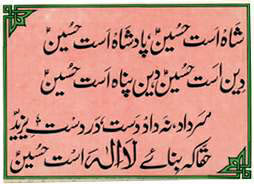 شاہ است حسینؑ، پادشاہ است حسینؑ
دین است حسینؑ دین پناہ است حسینؑ
سر داد، نہ داد دست، در دست یزید
حقا کہ بنائے لا الہ است حسینؑ